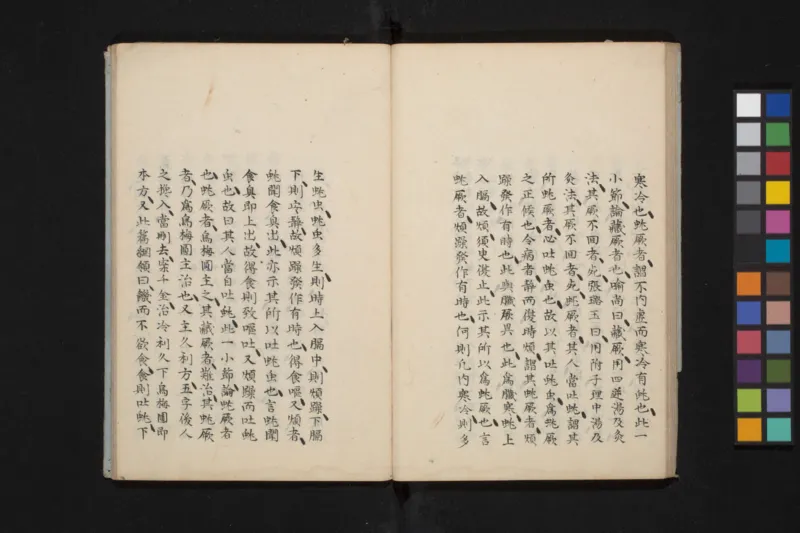 寒冷也蚘厥者謂不内虚而寒冷有蚘也此一
小節論藏厥者也喻尚曰藏厥用四逆湯及灸
法其厥不回者死張璐玉曰用附子理中湯及
灸法其厥不回者死蚘厥者其人當吐蚘謂其
所蚘厥者必吐蚘虫也故以其吐蚘虫爲蚘厥
之正候也令病者靜而復時煩謂其蚘厥者煩
躁發作有時也此與臓厥異也此爲臓寒蚘上
入膈故煩須臾復止此示其所以爲蚘厥也言
蚘厥者煩躁發作有時也何則凡内寒冷則多
生蚘虫蚘虫多生則時上入膈中則煩躁下膈
下則安靜故煩躁發作有時也得食嘔又煩者
蚘聞食臭出此亦示其所以吐蚘虫也言蚘聞
食臭即上出故得食則致嘔吐又煩躁而吐蚘
虫也故曰其人當自吐蚘此一小節論蚘厥者
也蚘厥者烏梅圓主之其藏厥者難治其蚘厥
者乃爲烏梅圓主治也又主久利方五字後人
之攙入當刪去案斗金治冷利久下烏梅圓即
本方又此篇綱領曰饑而不欲食食則吐蚘下